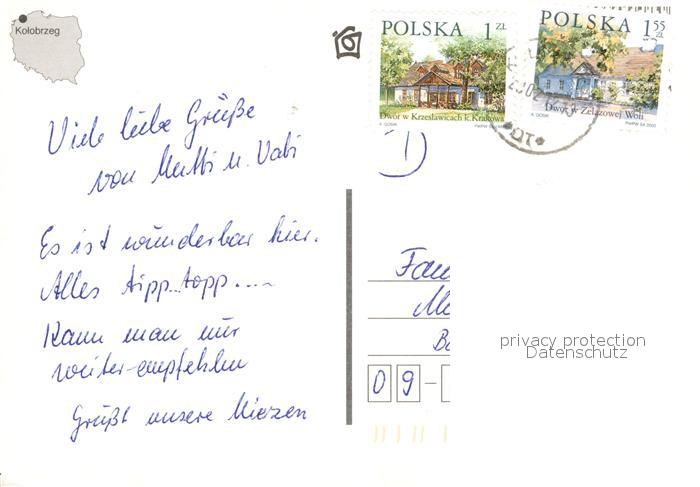 Kołobrzeg
POLSKA 1 ZŁ
Dwór w Krzesławicach k. Krakowa
POLSKA 1 55 ZŁ
Dwór w Żelazowej Woli
Viele liebe Grüße
von Mutti u. Vati
Es ist wunderbar hier.
Alles tipp..topp....
Kann man nur
weiter-empfehlen
Grüßt unsere Miezen
D
Fam
09-
privacy protection
Datenschutz